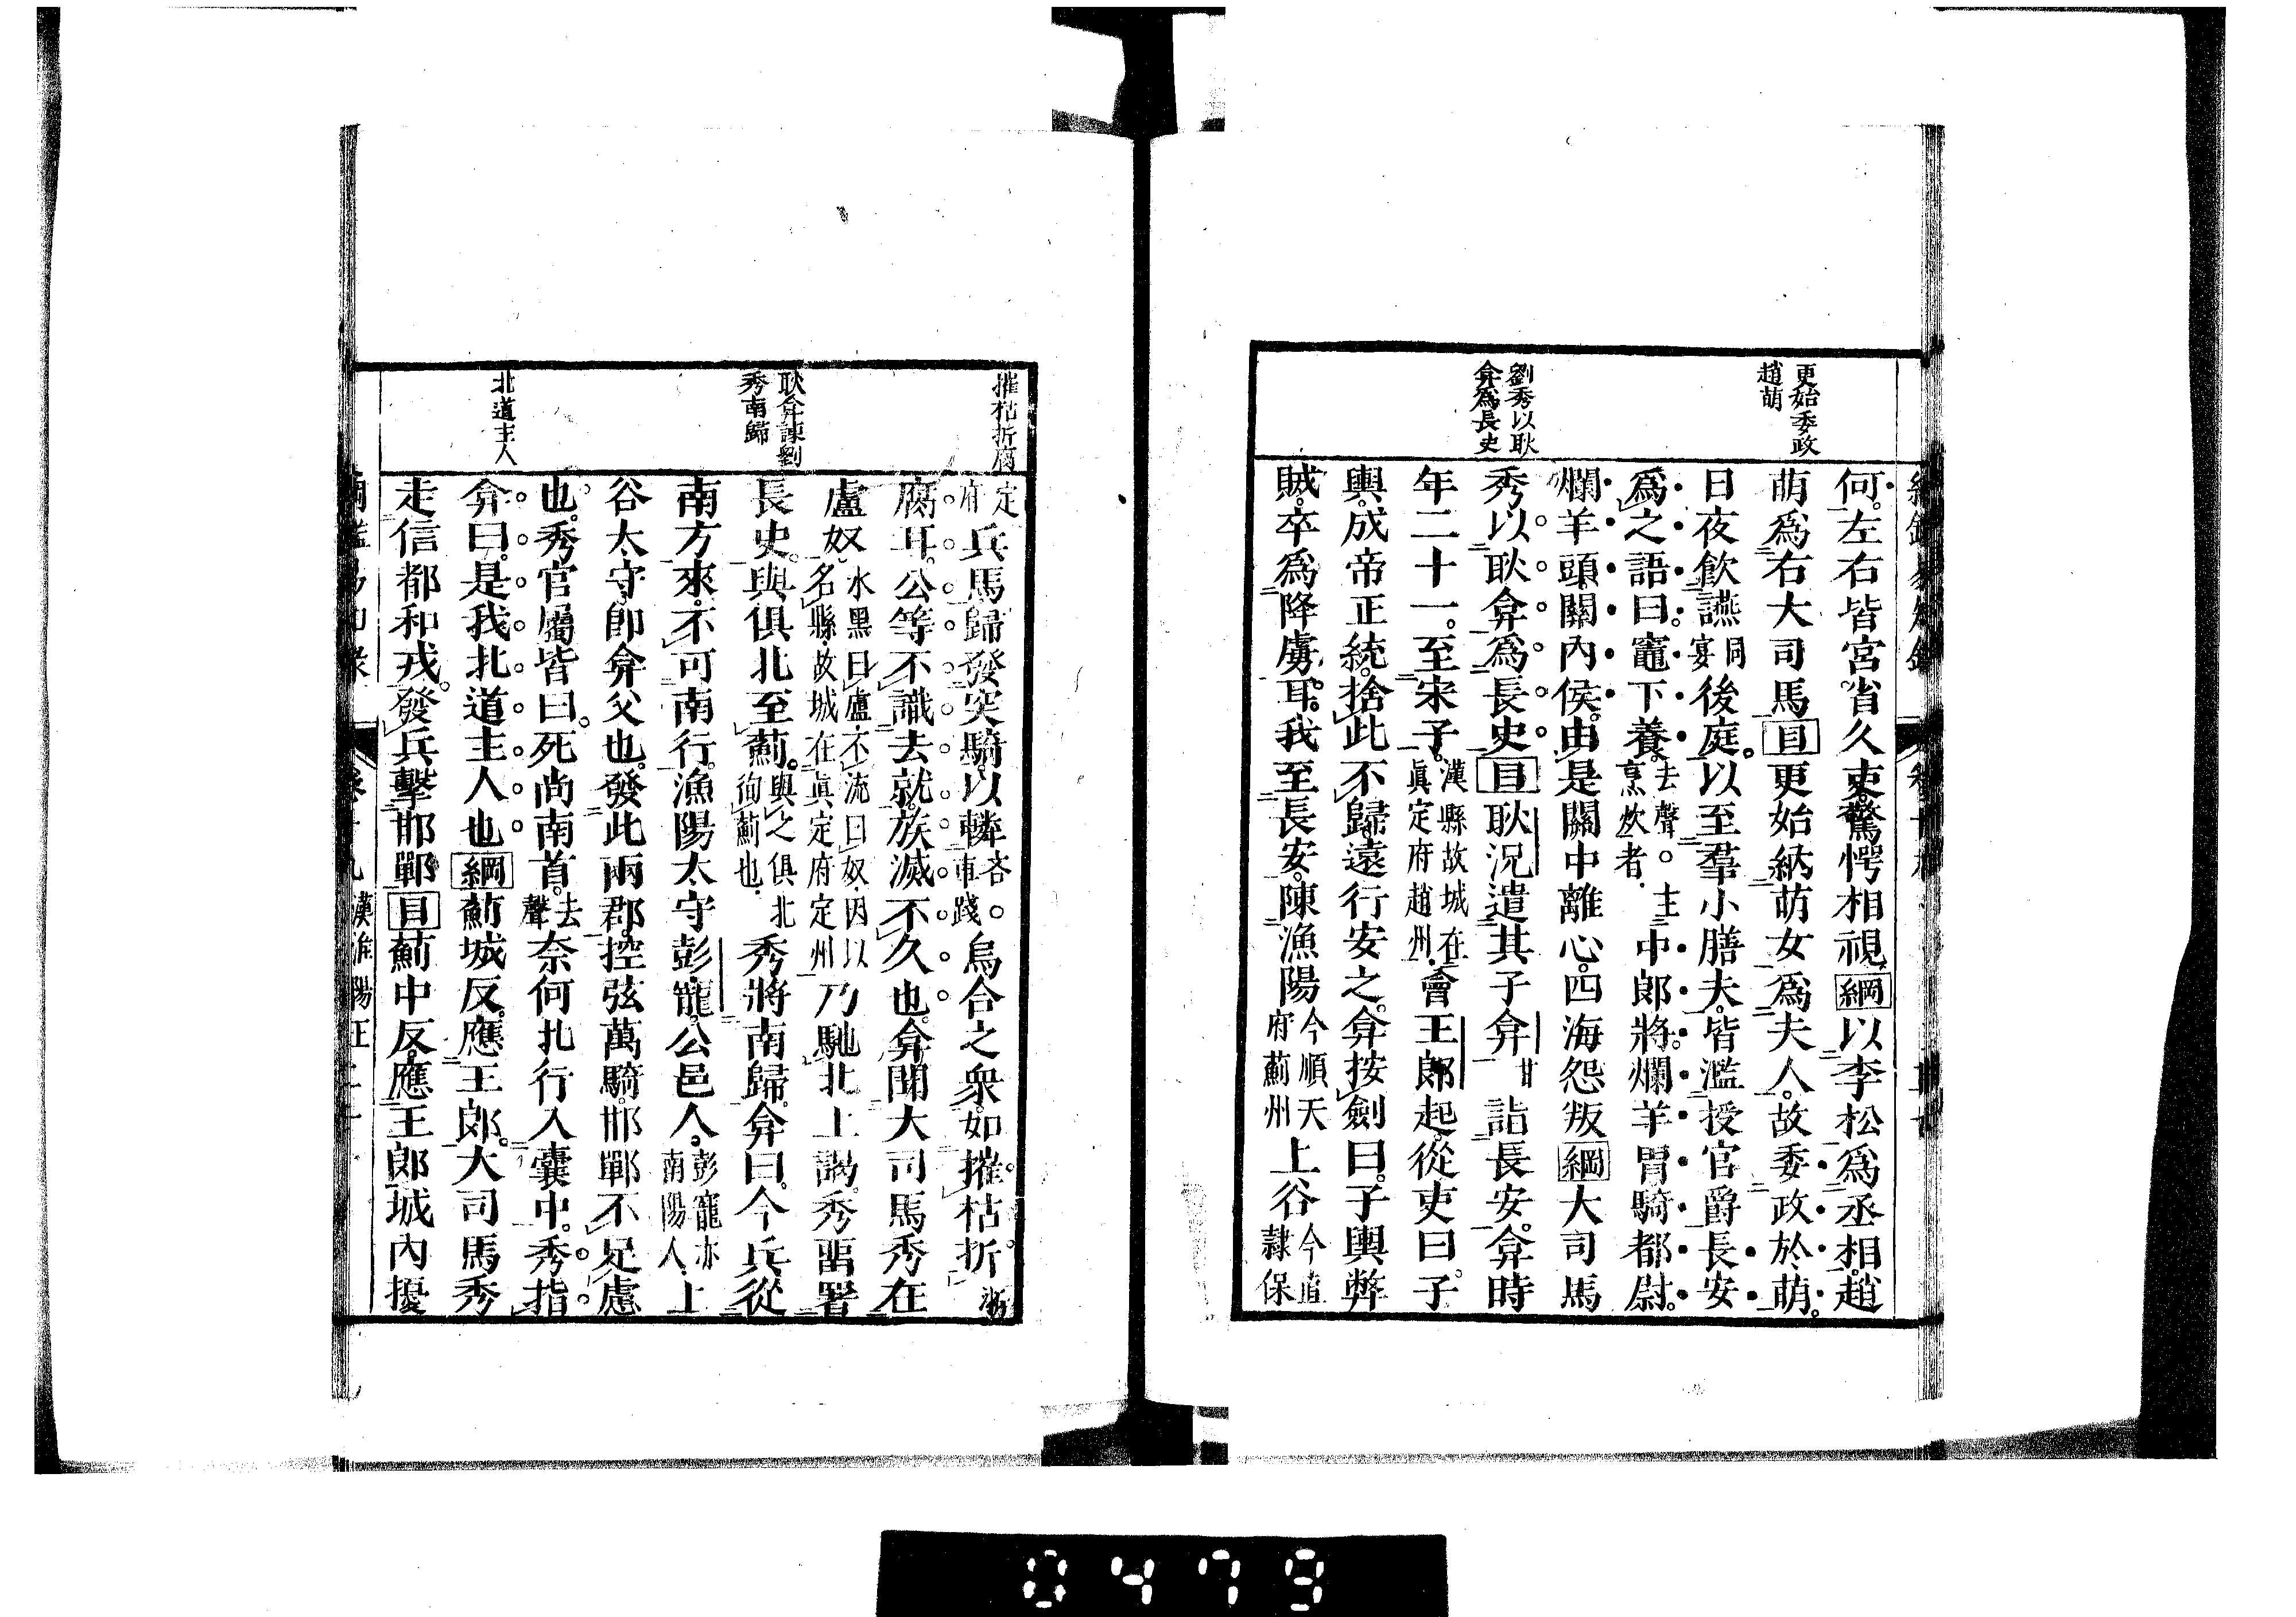 更始委政
趙萌
劉秀以耿
弇爲長史
何左右皆宮省久吏驚愕相視綱以李松爲丞相趙
萌爲右大司馬目更始納萌女爲夫人故委政於萌
日夜飲讌同宴後庭以至羣小膳夫皆濫授官爵長安
爲之語曰竈下養去聲。主烹炊者中郎將爛羊胃騎都尉
爛羊頭關內侯由是關中離心四海怨叛綱大司馬
秀以耿弇爲長史目耿況遣其子弇廿詣長安弇時
年二十一至宋子漢縣故城在眞定府趙州會王郎起從吏曰子
輿成帝正統捨此不歸遠行安之弇按劍曰子輿弊
賊卒爲降虜耳我至長安陳漁陽今順天府薊州上谷今直隸保
摧枯折腐
耿弇諫劉
秀南歸
北道主人
定府兵馬歸發突騎以轔吝。車踐烏合之衆如摧枯折
腐耳公等不識去就族滅不久也弇聞大司馬秀在
盧奴水黑曰盧不流曰奴因以名縣故城在眞定府定州乃馳北上謁秀畱署
長史與俱北至薊與之俱北徇薊也秀將南歸弇曰今兵從
南方來不可南行漁陽太守彭寵公邑人彭寵亦南陽人上
谷太守卽弇父也發此兩郡控弦萬騎邯鄲不足慮
也秀官屬皆曰死尚南首去聲奈何北行入囊中秀指
弇曰是我北道主人也綱薊城反應王郎大司馬秀
走信都和戎發兵擊邯鄲目薊中反應王郎城內擾
0479